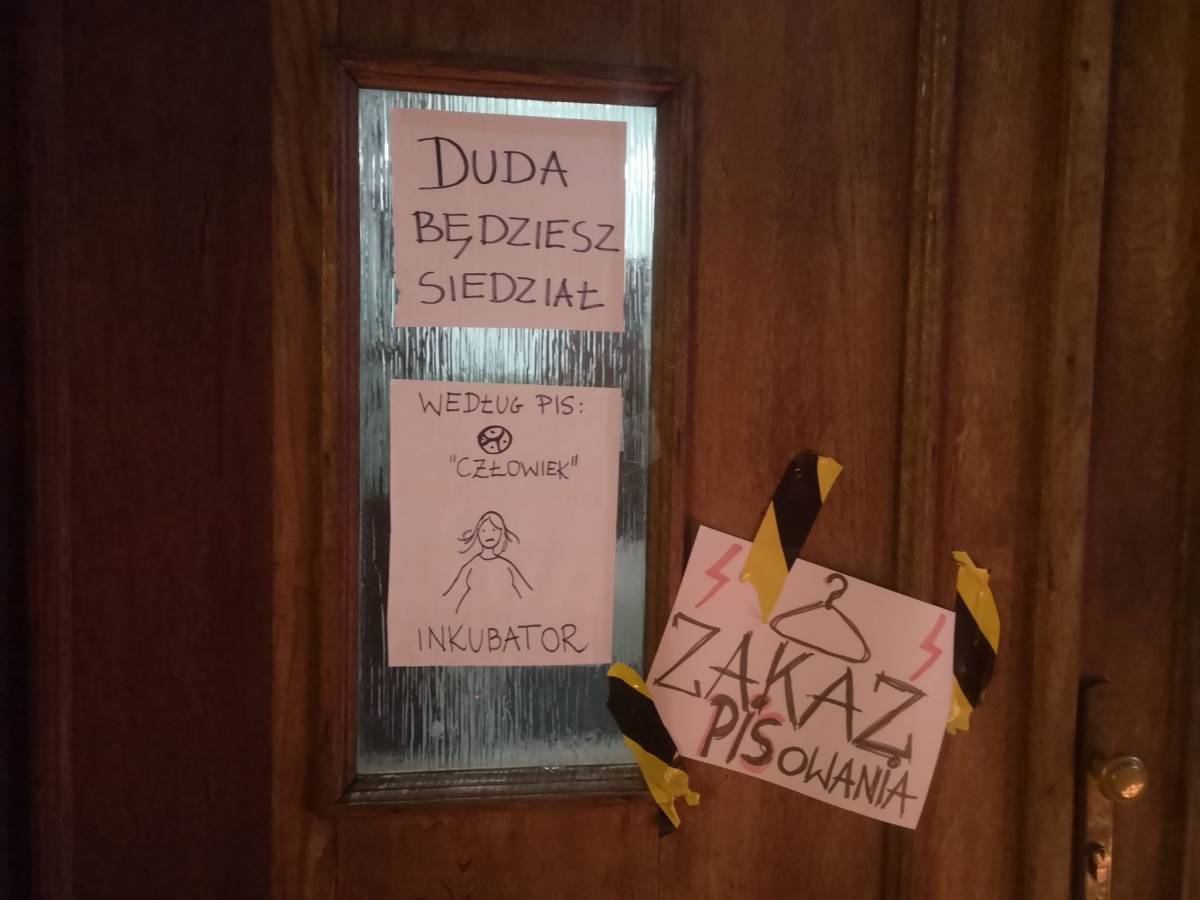 DUDA
BĘDZIESZ
SIEDZIAŁ
WEDŁUG PIS:
"CZŁOWIEK"
INKUBATOR
ZAKAZ
PiSOWANIA